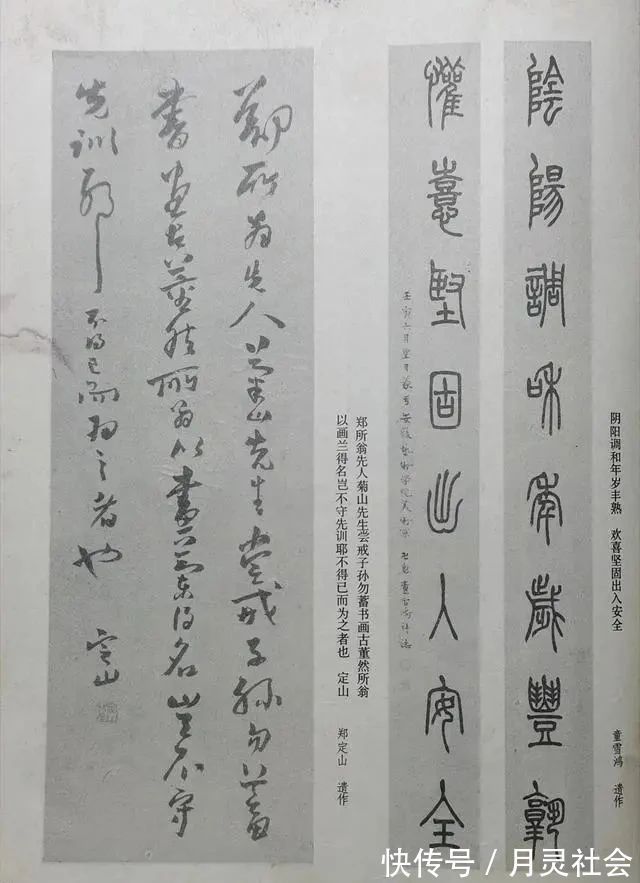 阴阳调和年岁丰熟 欢喜坚固出入安全
童雪鸿 遗作
陰陽調和年歲豐孰
懽憙堅固出入安全
郑所翁先人菊山先生尝戒子孙勿蓄书画古董然所翁
以画兰得名岂不守先训耶不得已而为之者也 定山
郑定山 遗作
鄭所翁先人菊山先生尝戒子孫勿蓄
書画古董然所翁以畫兰得名岂不守
先训耶不得已而为之者也 定山
快传号/月灵社会